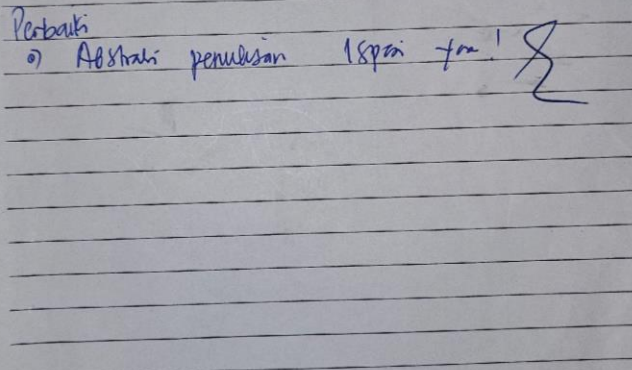 Perbaiki
•) Abstrak penulisan 1 spasi ya!